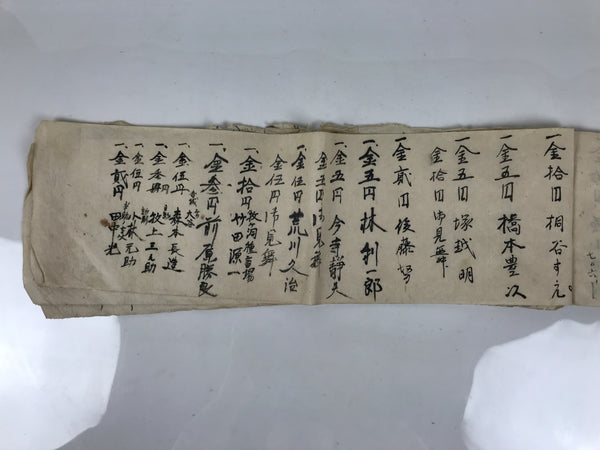 一金拾円 桐谷すえ
一、金五円 橋本豊次
一金五円 塚越明
金拾円 御見舞
一金貳円 後藤
一、金五円 林利一郎
一、金五円 今寺静夫
金五円 御見舞
一、金伍円 荒川久治
金伍円 御見舞
一、金拾円 竹田源一
一、金叁円 前原勝
一、金伍円 森本長造
一、金叁円 牧上三之助
一、金伍円 小林元助
一、金貳円 田中光